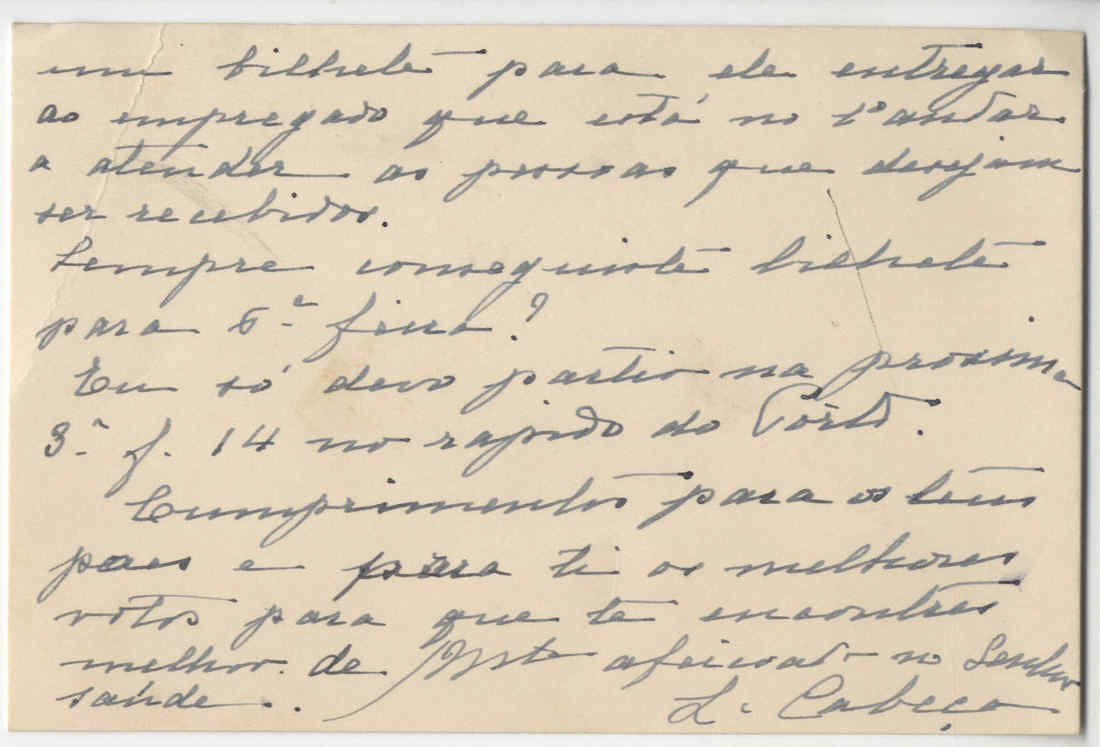 um bilhete para ele entregar
ao empregado que está no 1º andar
a atender as pessoas que desejam
ser recebidos.
Sempre conseguiste bilhete
para 6.ª feira?
Eu só devo partir na proxima
3.ª f. 14 no rapido do Pôrto.
Cumprimentos para os teus
paes e para ti os melhores
votos para que te encontres
melhor de afeiçoado no Senhor
saúde..
L. Cabeço